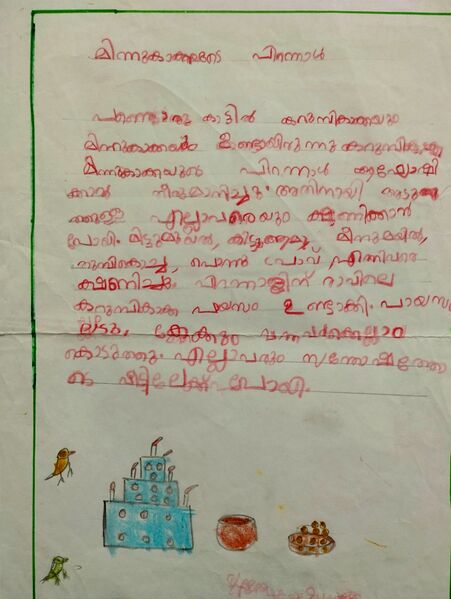 മിന്നുകാക്കയുടെ പിറന്നാൾ
പണ്ടൊരു കാട്ടിൽ കറുമ്പികാക്കയും
മിന്നുകാക്കയും ഉണ്ടായിരുന്നു കറുമ്പികാക്ക
മിന്നുകാക്കയുടെ പിറന്നാൾ ആഘോഷി
ക്കാൻ തീരുമാനിച്ചു. അതിനായി അടുത്തു
ള്ള എല്ലാവരെയും ക്ഷണിക്കാൻ
പോയി. മിട്ടുമുയൽ, കിട്ടു മീനുമയിൽ,
തുമ്പികൊച്ച, പൊൻ പ്രാവ് എന്നിവരെ
ക്ഷണിച്ചു. പിറന്നാളിന് രാവിലെ
കറുമ്പികാക്ക പയസം ഉണ്ടാക്കി. പായസ
ലഡു, കേക്കും വന്നവർക്കെല്ലാം
കൊടുത്തു. എല്ലാവരും സന്തോഷത്തോ
ടെ വീട്ടിലേക്ക് പോയി.